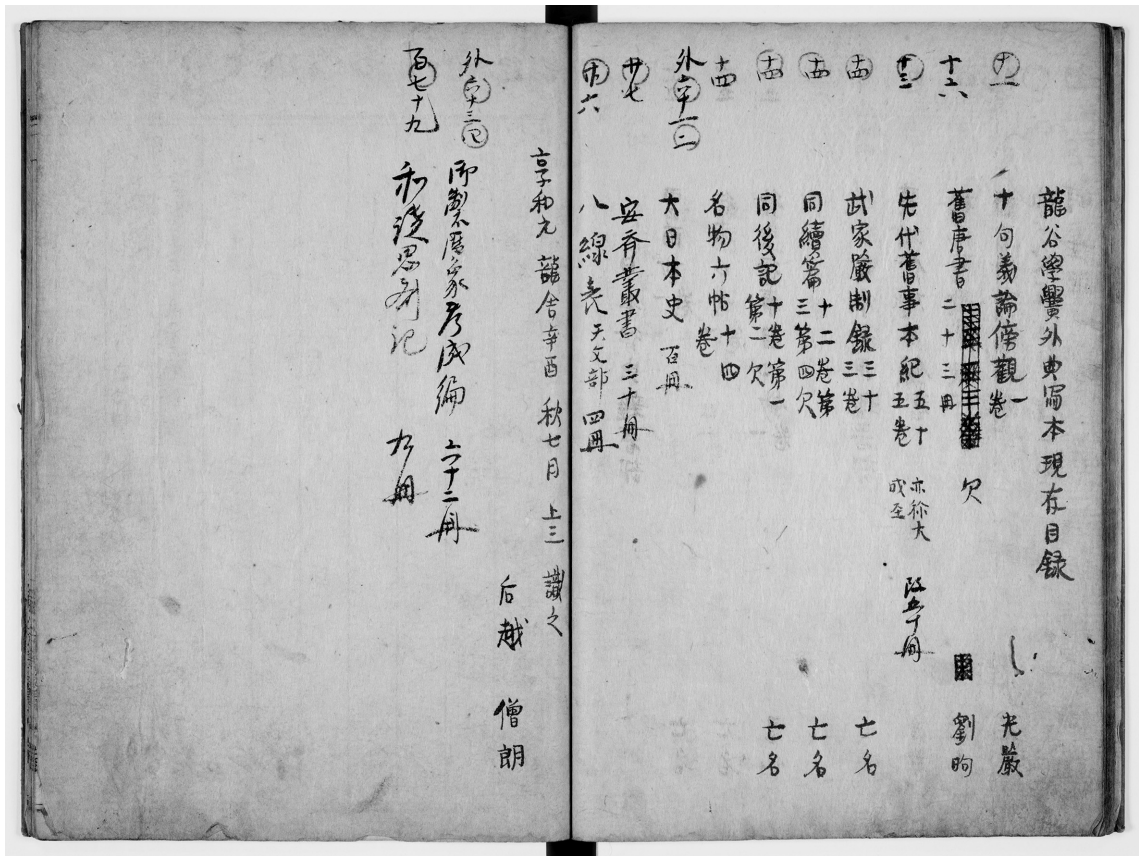 龍谷學黌外典寫本現在目録
十一 十句義論傍觀 一卷 光嚴
十六 舊唐書 二十三冊 欠 劉昫
十三 先代舊事本紀 五十五卷 亦称大成至 改五十冊
十四 武家嚴制録 三十三卷 亡名
十四 同續篇 十二卷第三第四欠 亡名
十四 同後記 十卷第一第二欠 亡名
十四 名物六帖 十四卷
外六十一 大日本史 百冊
廿七 安斉叢書 三十冊
十六 八線表 天文部 四冊
享和元 龍舎辛酉 秋七月 上三 識之
后越 僧朗
外六十三 御製本暦象考成編 六十二冊
百七十九 和讃思斉記 九冊